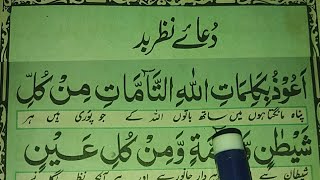 دُعائے نظرِ بد
اَعُوْذُ بِكَلِمَاتِ اللّٰهِ التَّآمَّاتِ مِنْ كُلِّ
پناہ مانگتا ہوں میں ساتھ باتوں اللہ کے جو پوری ہیں ہر
شَيْطٰنٍ وَمِنْ كُلِّ عَيْنٍ
شیطان سے